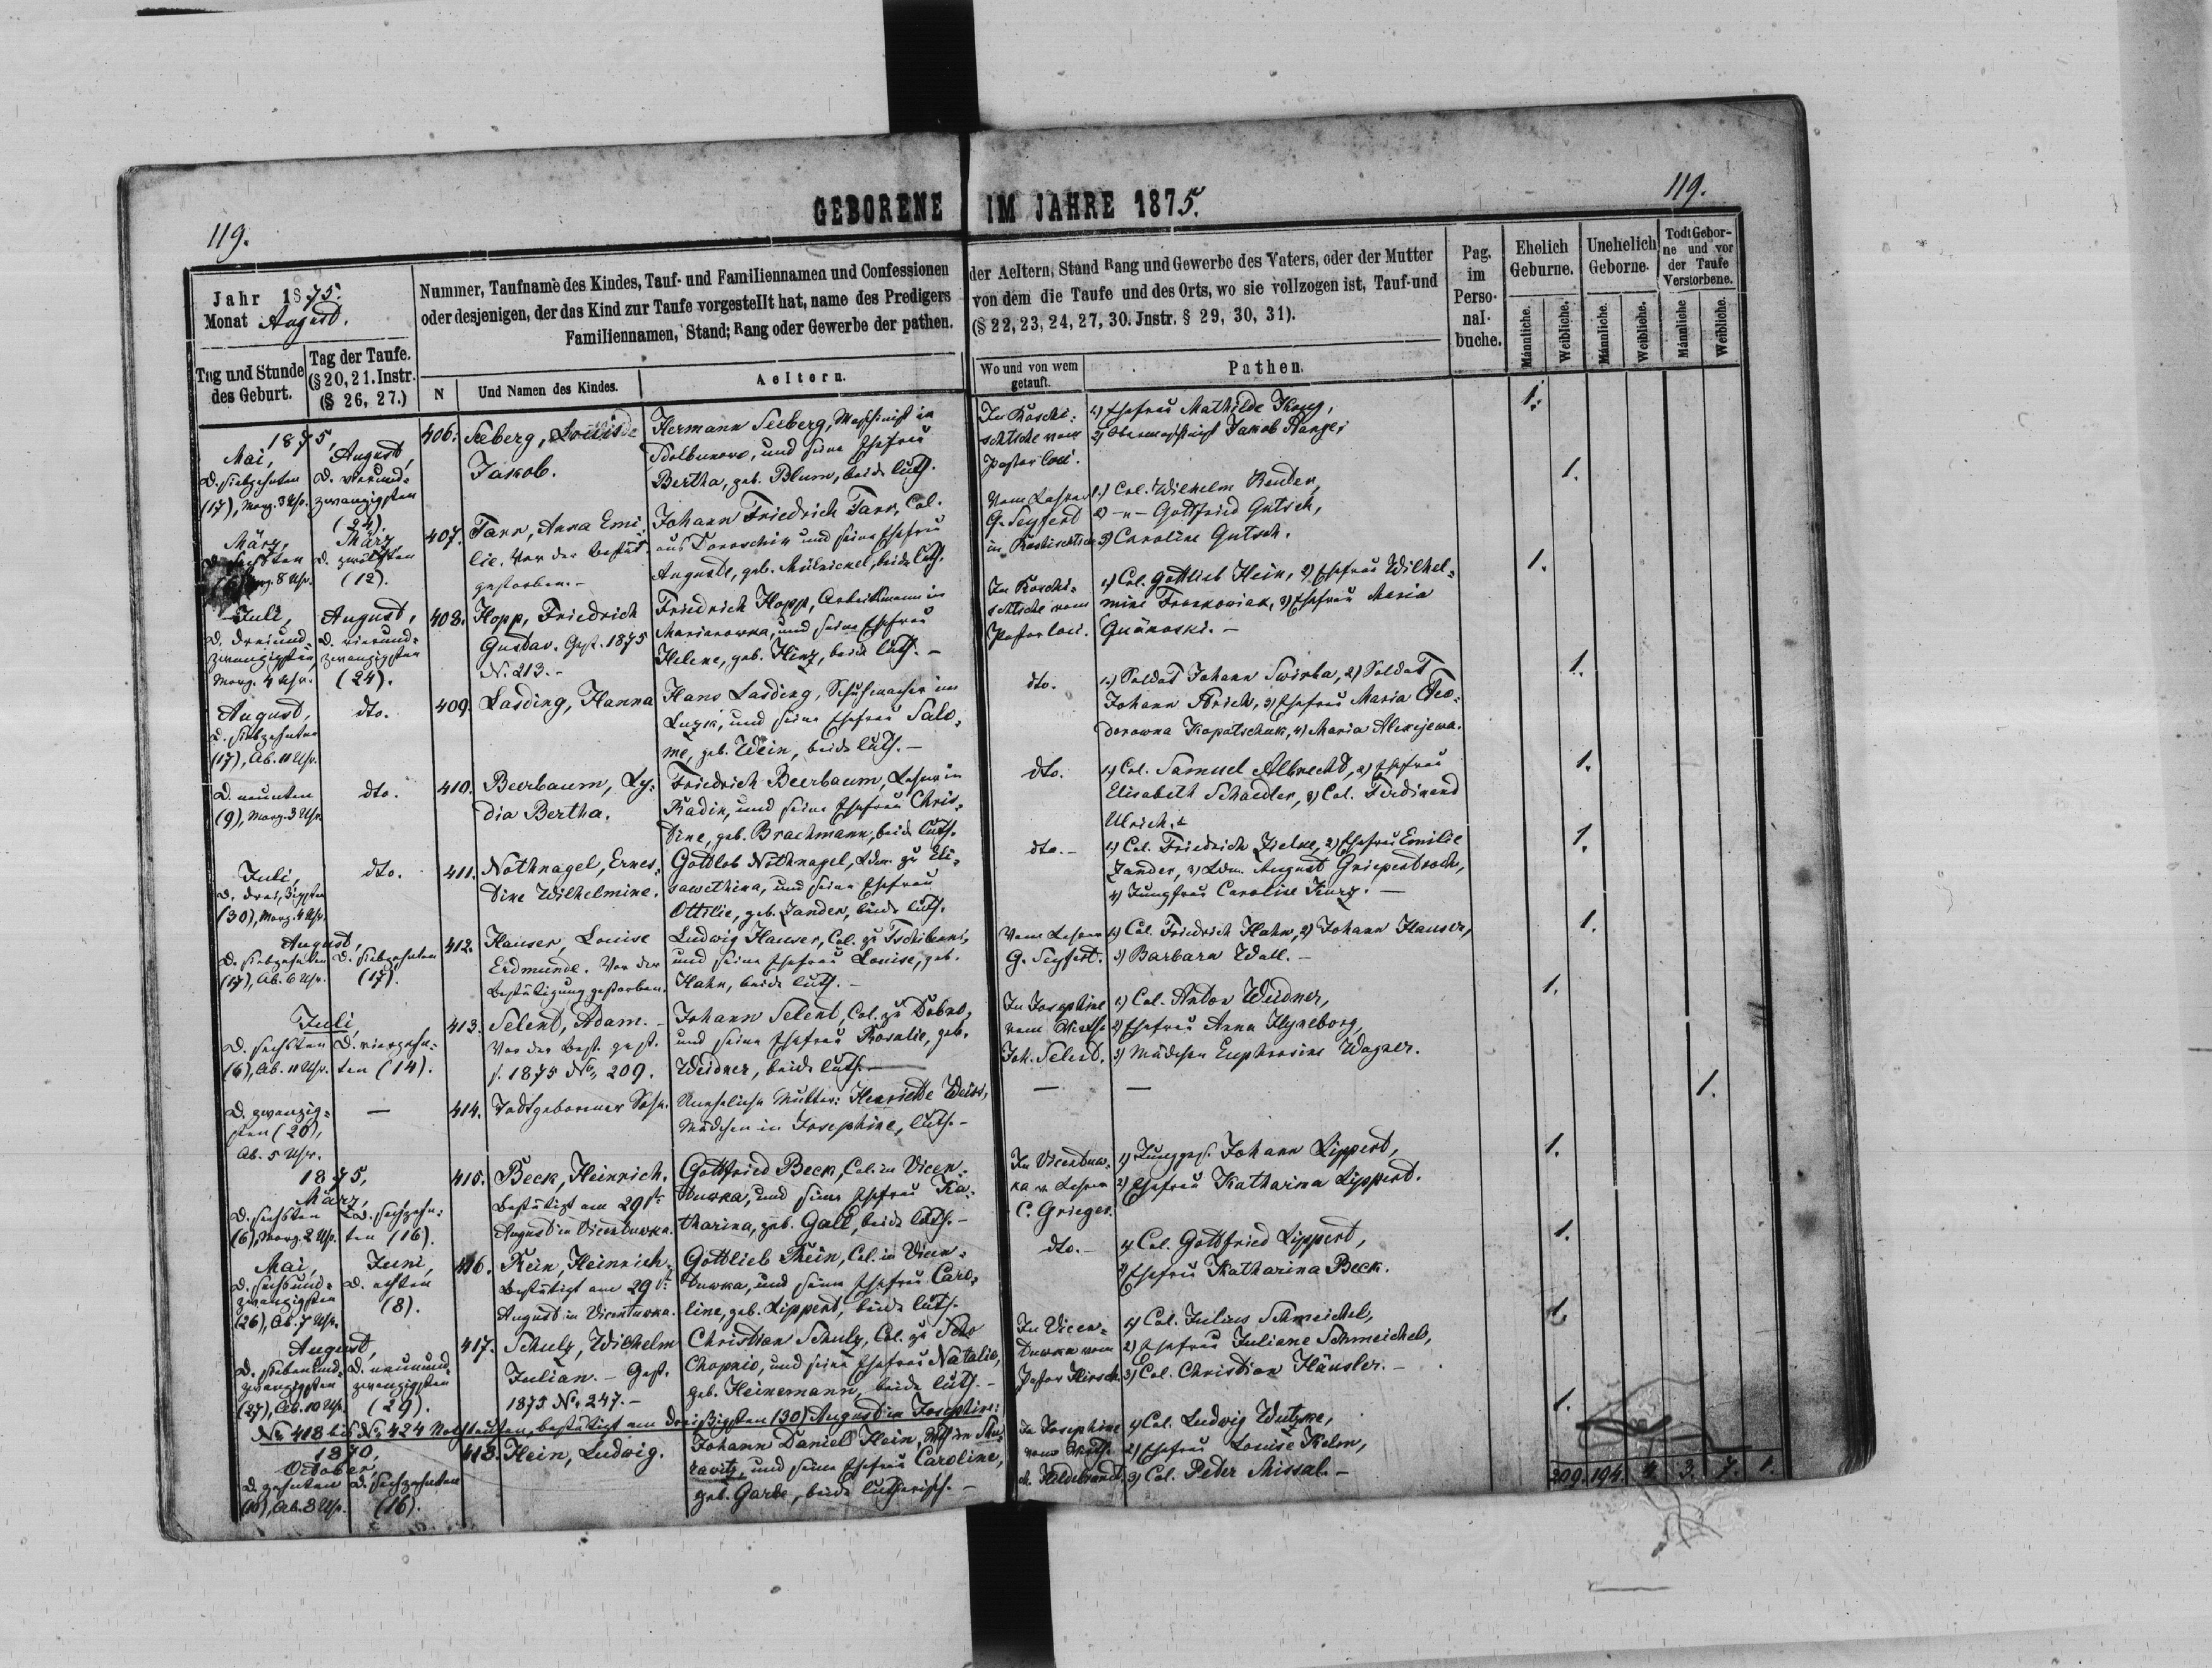 GEBORENE IM JAHRE 1875.
119.
119.
Jahr 1875.
Monat August.
Tag und Stunde des Geburt.
Tag der Taufe.
(§ 20, 21. Instr.
(§ 26, 27.)
Nummer, Taufname des Kindes, Tauf- und Familiennamen und Confessionen
oder desjenigen, der das Kind zur Taufe vorgestellt hat, name des Predigers
Familiennamen, Stand; Rang oder Gewerbe der pathen.
N
Und Namen des Kindes.
Aeltern.
der Aeltern, Stand Rang und Gewerbe des Vaters, oder der Mutter
von dem die Taufe und des Orts, wo sie vollzogen ist, Tauf-und
(§ 22, 23, 24, 27, 30. Jnstr. § 29, 30, 31).
Wo und von wem getauft.
Pathen.
Pag. im Perso- nal- buche.
Ehelich Geburne.
Unehelich Geborne.
Todt Gebor- ne und vor der Taufe Verstorbene.
Männliche.
Weibliche.
Männliche.
Weibliche.
Männliche
Weibliche.
1875,
Mai,
D. siebzehnten
(17), Morg. 3 Uhr.
August,
D. vierund-
zwanzigsten
(24).
406.
Seeberg,
Jakob.
Hermann Seeberg, Maschinist in
Sdolbunowo, und seine Ehefrau
Bertha, geb. Blum, beide luth.
In Roschi-
schtsche vom
Pastor loci.
1) Ehefrau Mathilde
2) Jakob
1.
März,
D. sechsten
Morg. 8 Uhr.
März
D. zwölften
(12).
407.
Tarr, Anna Emi-
lie. Vor der Bestät.
gestorben.-
Johann Friedrich Tarr, Col.
aus und seine Ehefrau
Auguste, geb. beide luth.
Vom Lehrer
G. Seyfert
in
1.) Col. Wilhelm
2) -"- Gottfried Gutsch,
3) Caroline Gutsch.
1.
Juli,
D. dreiund-
zwanzigsten,
Morg. 4 Uhr.
August,
D. vierund-
zwanzigsten
(24).
408.
Hopp, Friedrich
Gustav. Gest. 1875
N. 213.-
Friedrich Hopp, Arbeitsmann in
Marianowka, und seine Ehefrau
Helene, geb. Hinz, beide luth. -
In Roschi-
schtsche vom
Pastor loci.
1) Col. Gottlieb Hein, 2) Ehefrau Wilhel-
mine 3) Ehefrau Maria
1.
August,
D. siebzehnten
(17), Ab. 11 Uhr.
dto.
409.
Lasding, Hanna
Hans Lasding, Schuhmacher in
Luzk, und seine Ehefrau Salo-
me, geb. Wein, beide luth. -
dto.
1.) Soldat Johann Swirba, 2) Soldat
Johann 3) Ehefrau Maria Feo-
dorowna Kopatschuk, 4) Maria Alexejewa.
1.
D. neunten
(9), Morg. 3 Uhr.
dto.
410.
Beerbaum, Ly-
dia Bertha.
Friedrich Beerbaum, Lehrer in
Kadin, und seine Ehefrau Chris-
tine, geb. Brachmann, beide luth.
dto.
1) Col. Samuel Albrecht, 2) Ehefrau
Elisabeth Schaedler, 3) Col. Ferdinand
Ulrich.
1.
Juli,
D. dreißigsten
(30), Morg. 4 Uhr.
dto.
411.
Nothnagel, Ernes-
tine Wilhelmine.
Gottlob Nothnagel, zu Eli-
sawethina, und seine Ehefrau
Ottilie, geb. Zander, beide luth.
dto. -
1) Col. Friedrich Zielke, 2) Ehefrau Emilie
Zander, 3) August Griepentroch,
4) Jungfrau Caroline Kurz. -
1.
August,
D. siebzehnten
(17), Ab. 6 Uhr.
D. siebzehnten
(17).
412.
Hauser, Louise
Erdmunde. Vor der
Bestätigung gestorben.
Ludwig Hauser, Col. zu
und seine Ehefrau Louise, geb.
Hahn, beide luth. -
Vom Lehrer
G. Seyfert.
1) Col. Friedrich Hahn, 2) Johann Hauser,
3) Barbara Wall. -
1.
Juli,
D. sechsten
(6), Ab. 11 Uhr.
D. vierzehn-
ten (14).
413.
Selent, Adam. -
Vor der Best. gest.
s. 1875 No. 209.
Johann Selent, Col. zu
und seine Ehefrau Rosalie, geb.
Weidner, beide luth.-
In Josephine
vom Wirth
Joh. Selent.
1) Col. Anton Weidner,
2) Ehefrau Anna
3) Mädchen Euphrosine Wagner.
1.
D. zwanzig-
sten (20),
Ab. 5 Uhr.
-
414.
Todtgeborener Sohn.
Uneheliche Mutter: Henriette Weiss,
Mädchen in Josephine, luth. -
-
-
1.
1875,
März,
D. sechsten
(6), Morg. 2 Uhr.
D. sechzehn-
ten (16).
415.
Beck, Heinrich.
Bestätigt am 29st.
August in Vicentuwka.
Gottfried Beck, Col. in Vicen-
tuwka, und seine Ehefrau Ka-
tharina, geb. Gall, beide luth. -
In Vicentuw-
ka v. Lehrer
C. Grieger.
1) Junggs. Johann Lippert,
2) Ehefrau Katharina Lippert.
1.
Mai,
D. sechsund-
zwanzigsten
(26), Ab. 7 Uhr.
Juni,
D. achten
(8).
416.
Rein, Heinrich.
Bestätigt am 29st.
August in Vicentuwka.
Gottlieb Rein, Col. in Vicen-
tuwka, und seine Ehefrau Caro-
line, geb. Lippert, beide luth.
dto. -
1) Col. Gottfried Lippert,
2) Ehefrau Katharina Beck.
1.
August,
D. siebenund-
zwanzigsten
(27), Ab. 10 Uhr.
D. neunund-
zwanzigsten
(29).
417.
Schulz, Wilhelm
Julian. - Gest.
1875 No. 247. -
Christian Schulz, Col. zu
und seine Ehefrau Natalie,
geb. Heinemann, beide luth. -
In Vicen-
tuwka vom
Pastor Hirsch.
1) Col. Julius Schmeichel,
2) Ehefrau Juliane Schmeichel,
3) Col. Christian Häusler. -
1.
No. 418 bis No. 424 Nothtaufen, bestätigt am dreißigsten (30) August in Josephine:
1870,
October,
D. zehnten
(10), Ab. 8 Uhr.
D. sechzehnten
(16).
418.
Hein, Ludwig.
Johann Daniel Hein,
und seine Ehefrau Caroline,
geb. Garbe, beide lutherisch. -
In Josephine
vom Wirth
Hildebrandt.
1) Col. Ludwig Wutzke,
2) Ehefrau Louise Kelm,
3) Col. Peter Missal. -
1.
209. 194. 4. 3. 7. 1.